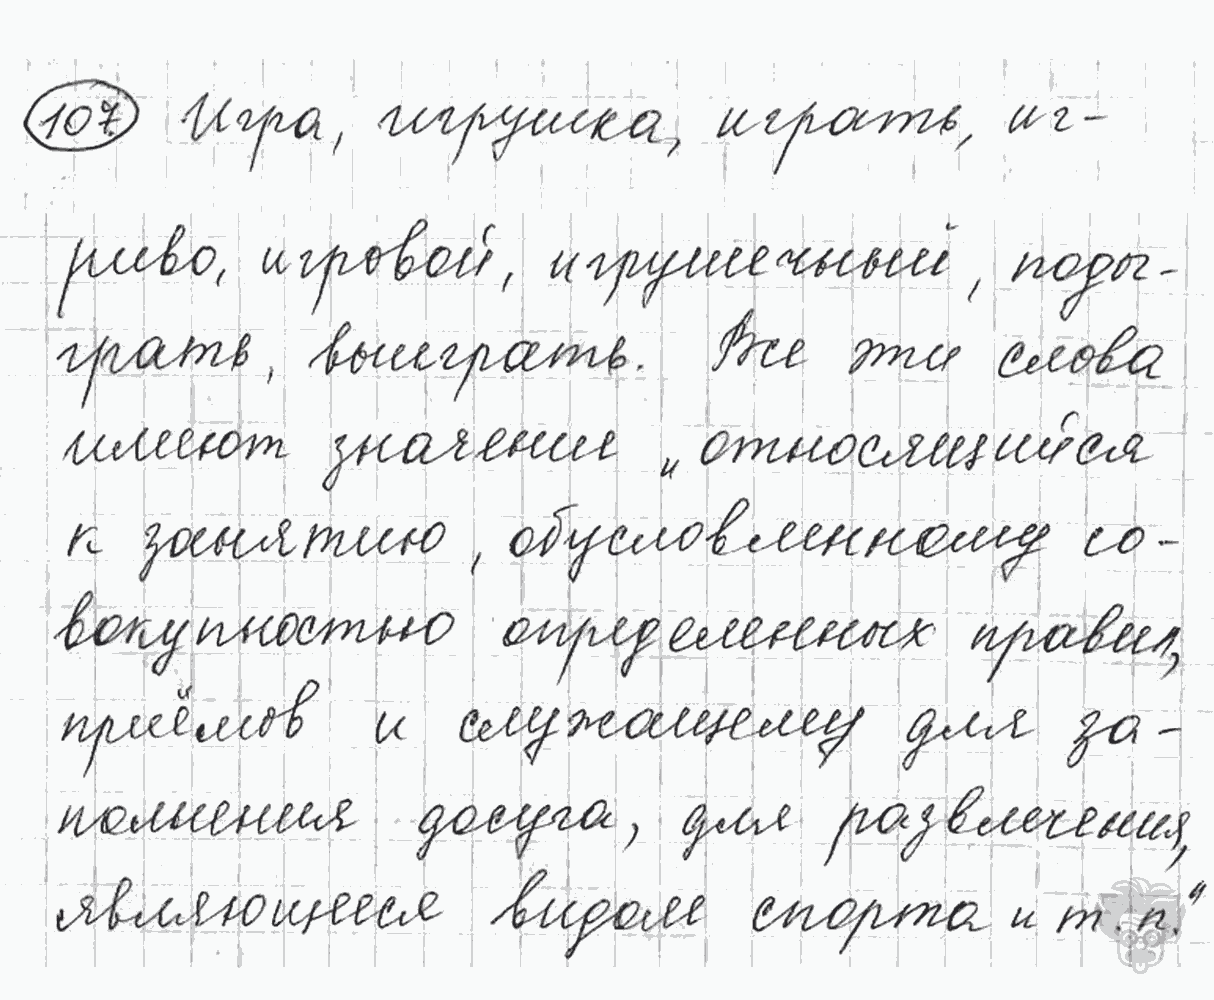 107 Игра, игрушка, играть, иг-
риво, игровой, игрушечный, поды-
грать, выиграть. Все эти слова
имеют значение „относящийся
к занятию, обусловленному со-
вокупностью определенных правил,
приёмов и служащему для за-
полнения досуга, для развлечения,
являющееся видом спорта и т. п.“